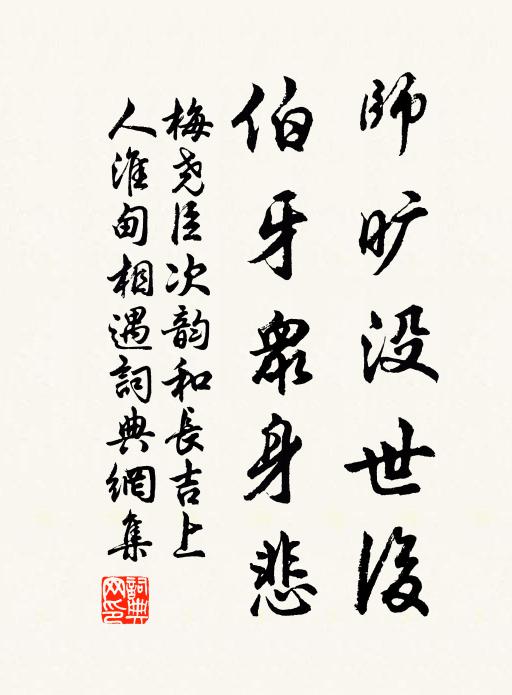 師旷没世後
伯牙衆身悲
梅尧臣次韵和長吉上
人淮甸相遇詞典網集
詞典网印